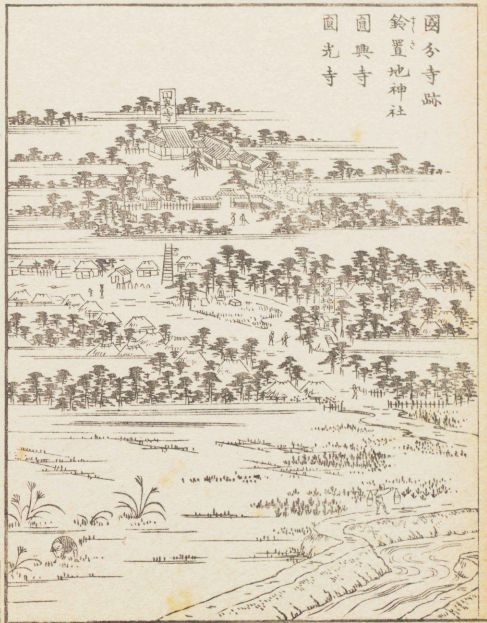 國分寺跡
鈴置地神社
すゞき
圓興寺
圓光寺
圓興寺